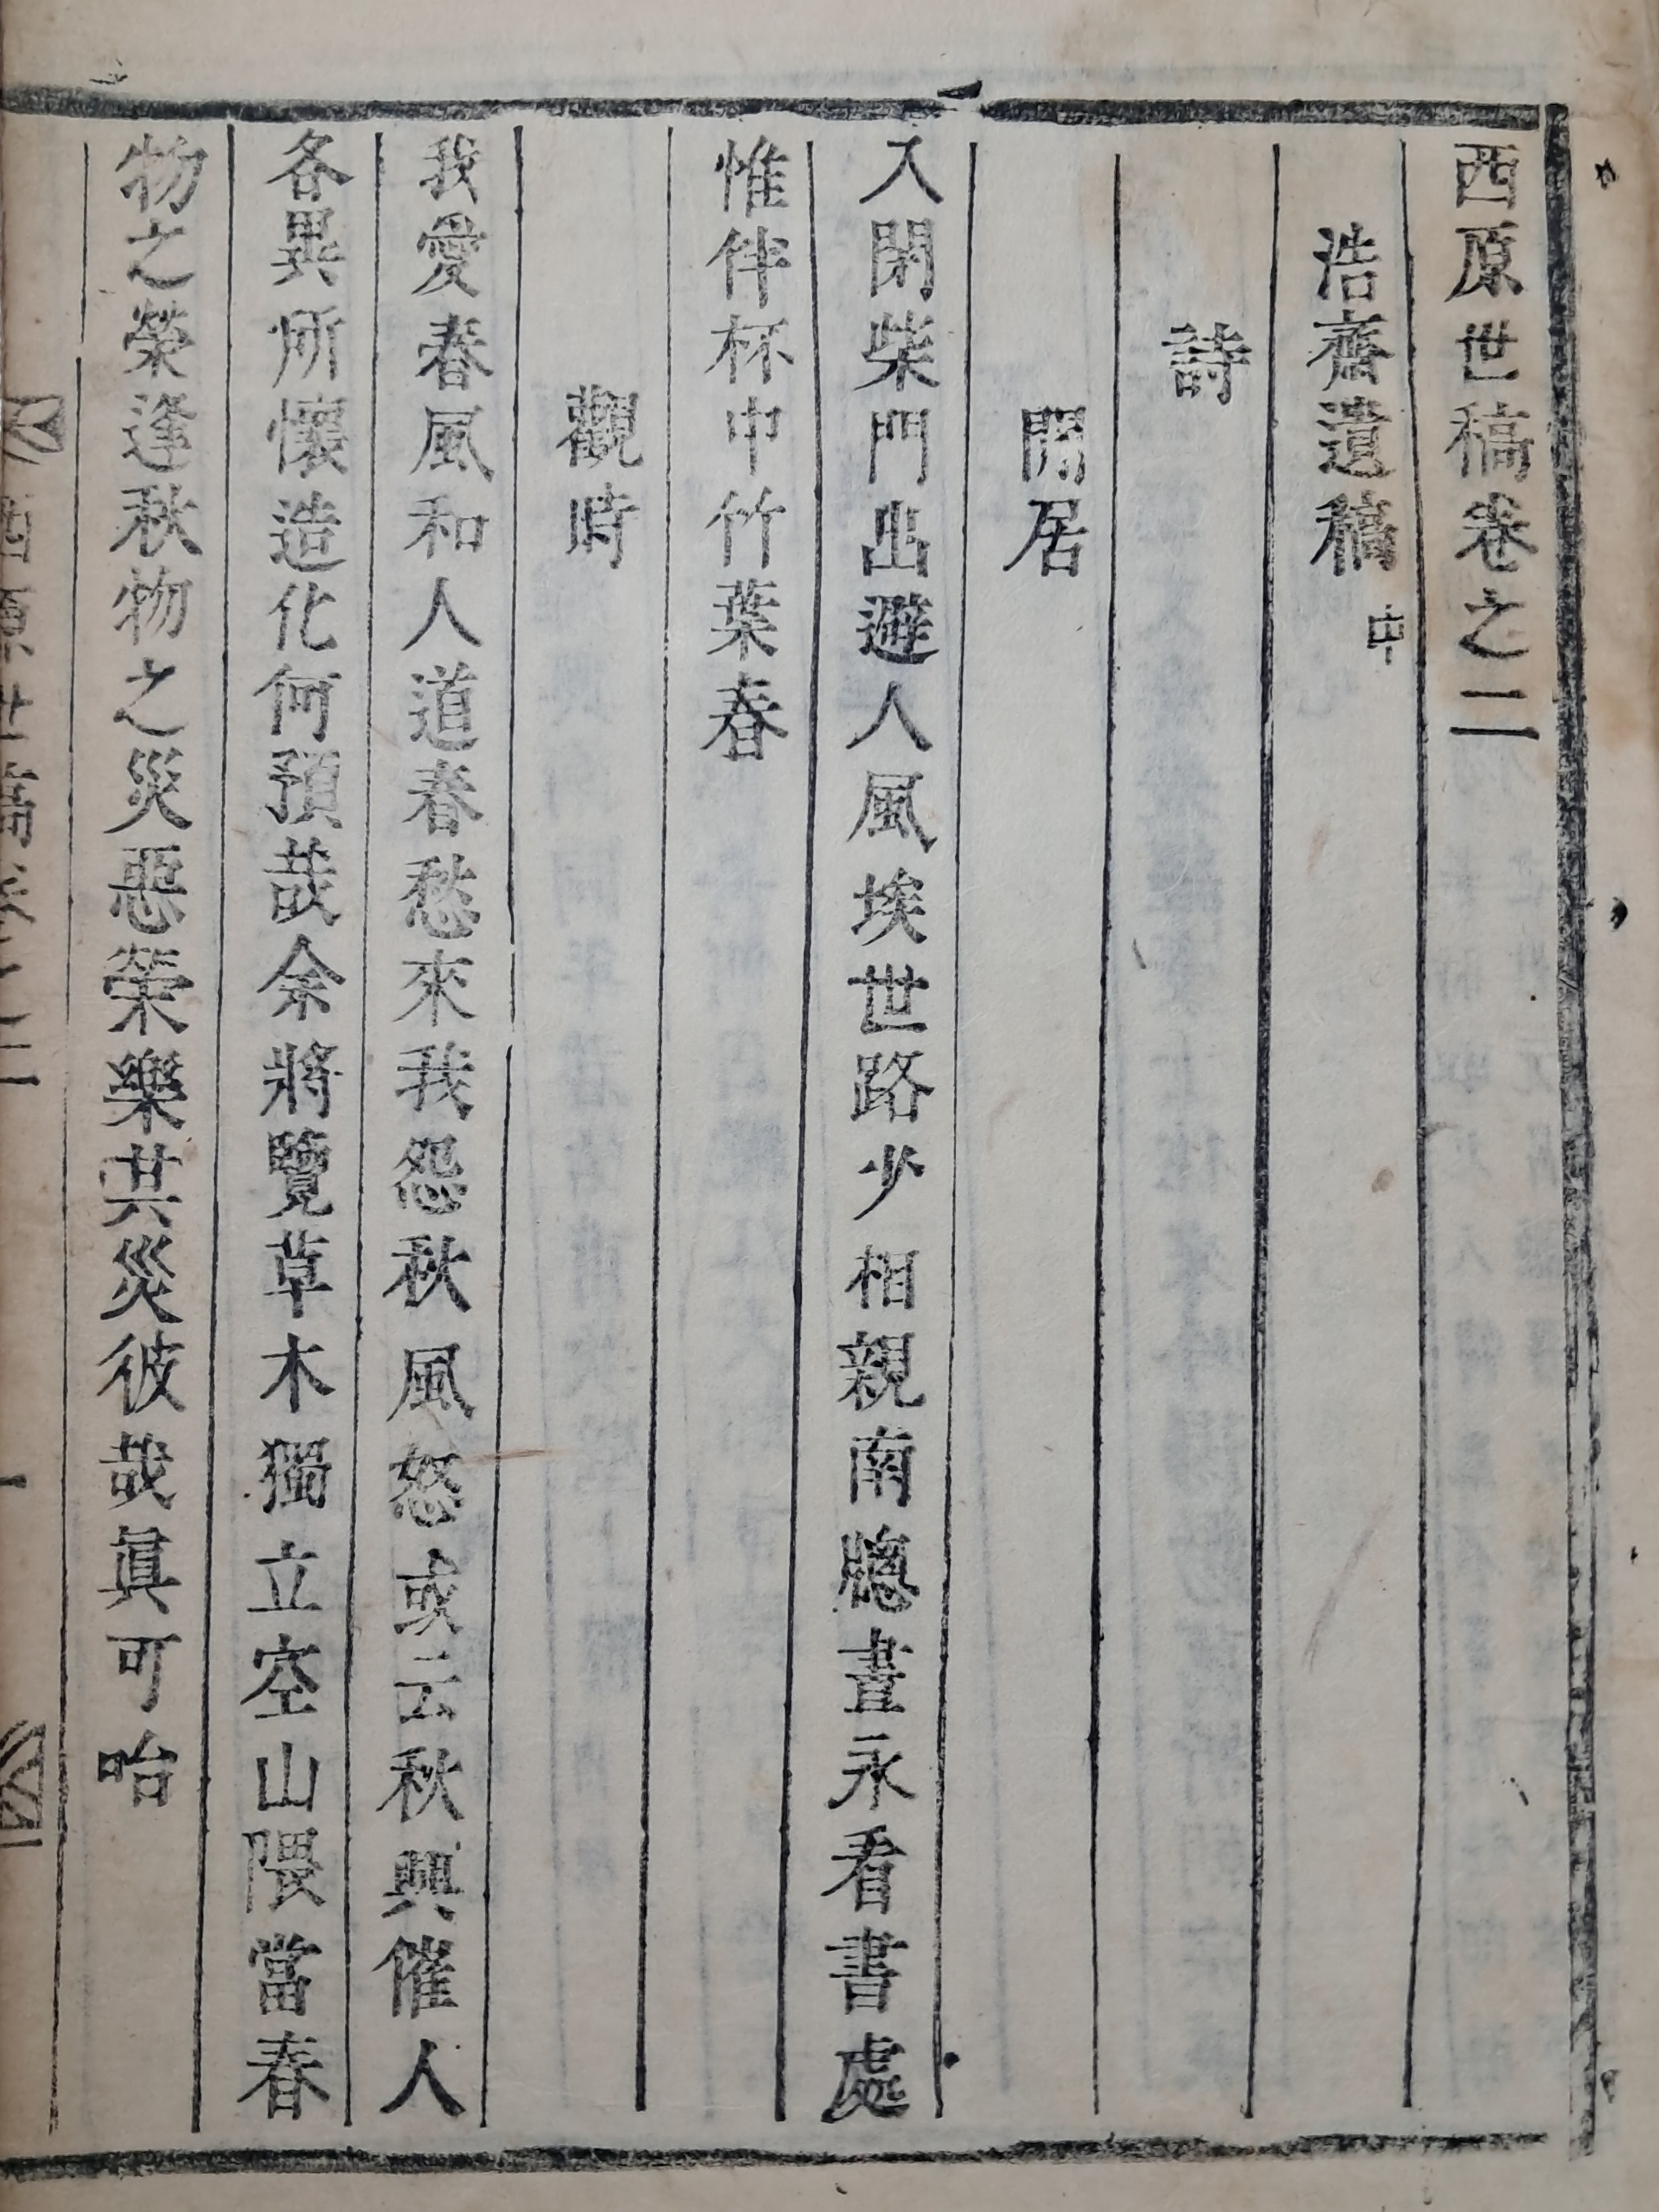 西原世稿卷之二
浩齋遺稿 中
詩
閒居
入閉柴門出避人風埃世路少相親南牕晝永看書處
惟伴杯中竹葉春
觀時
我愛春風和人道春愁來我怨秋風怒或云秋興催人
各異所懷造化何預哉余將覽草木獨立空山隈當春
物之榮逢秋物之災惡榮樂其災彼哉眞可咍
西原世稿卷之二
一